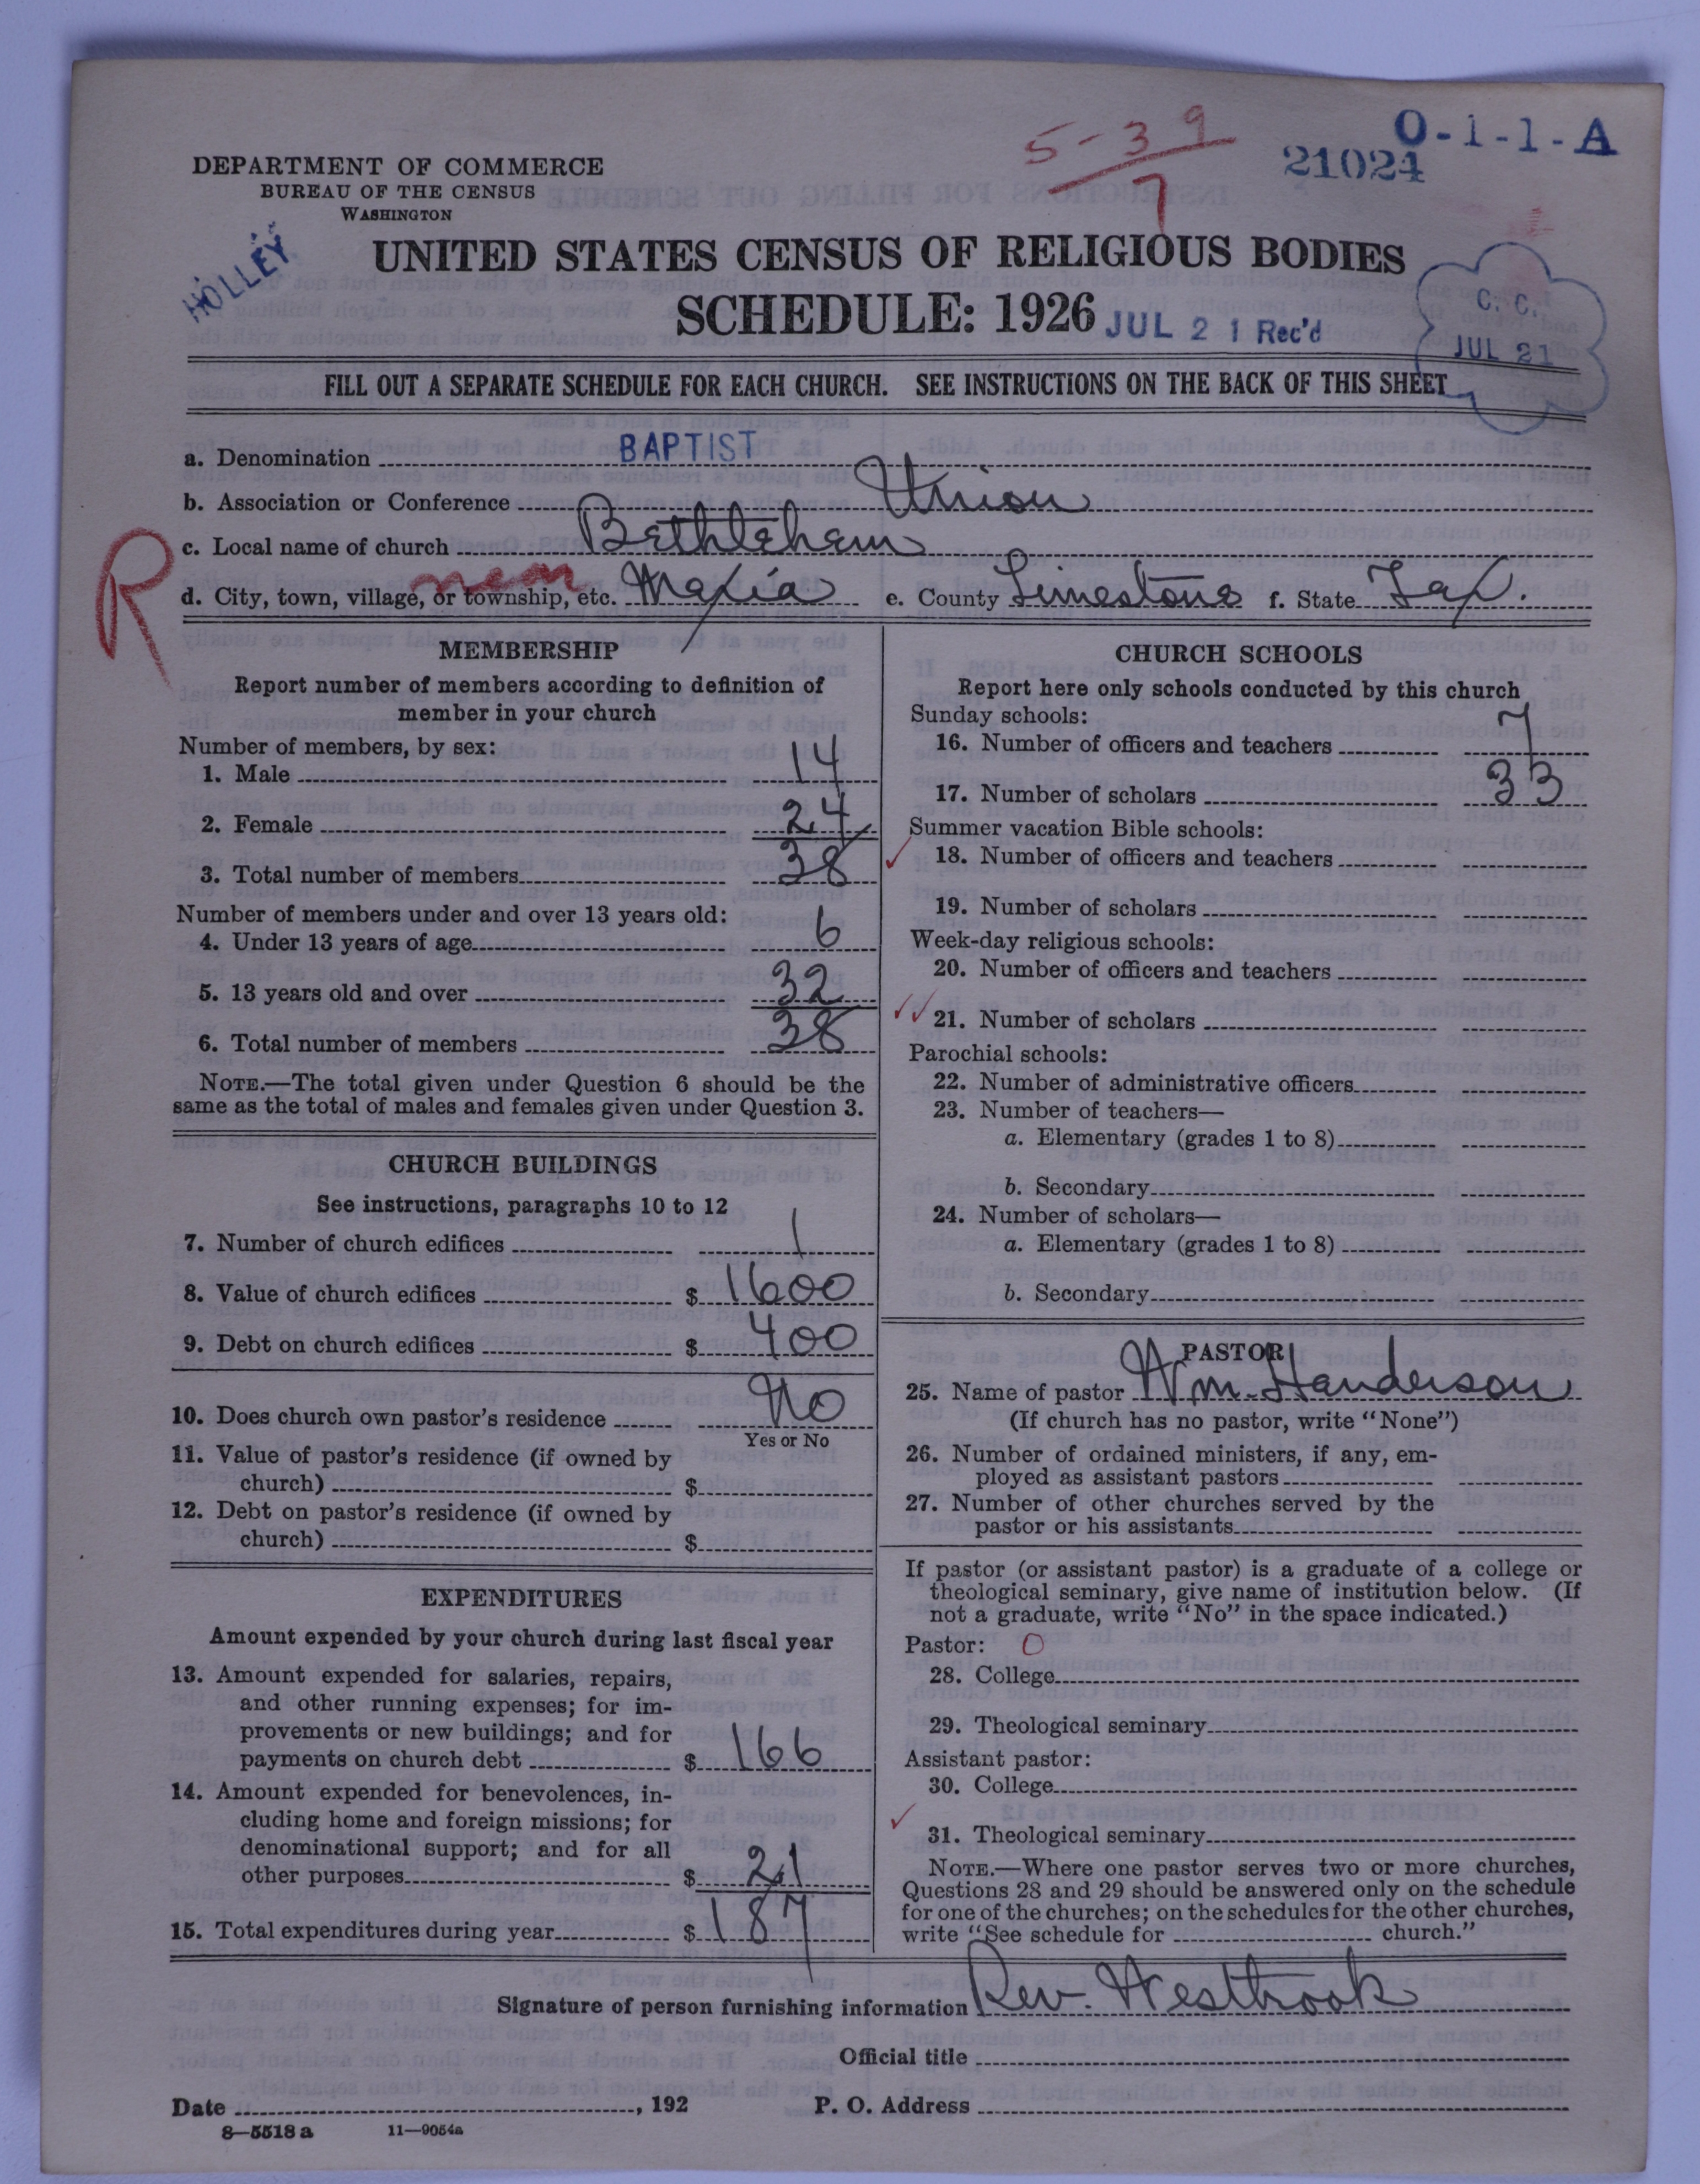 5-39
7
O-1-1-A
21024
DEPARTMENT OF COMMERCE
BUREAU OF THE CENSUS
WASHINGTON
HOLLEY
UNITED STATES CENSUS OF RELIGIOUS BODIES
SCHEDULE: 1926
JUL 21 Rec'd
C. C.
JUL 21
FILL OUT A SEPARATE SCHEDULE FOR EACH CHURCH. SEE INSTRUCTIONS ON THE BACK OF THIS SHEET
a. Denomination BAPTIST
b. Association or Conference Union
c. Local name of church Bethleham
R
d. City, town, village, or township, etc. near Mexia e. County Limestone f. State Tex.
MEMBERSHIP
Report number of members according to definition of
member in your church
Number of members, by sex:
1. Male 14
2. Female 24
3. Total number of members 38
Number of members under and over 13 years old:
4. Under 13 years of age 6
5. 13 years old and over 32
6. Total number of members 38
NOTE.—The total given under Question 6 should be the
same as the total of males and females given under Question 3.
CHURCH BUILDINGS
See instructions, paragraphs 10 to 12
7. Number of church edifices 1
8. Value of church edifices $ 1600
9. Debt on church edifices $ 400
10. Does church own pastor's residence No
Yes or No
11. Value of pastor's residence (if owned by
church) $
12. Debt on pastor's residence (if owned by
church) $
EXPENDITURES
Amount expended by your church during last fiscal year
13. Amount expended for salaries, repairs,
and other running expenses; for im-
provements or new buildings; and for
payments on church debt $ 166
14. Amount expended for benevolences, in-
cluding home and foreign missions; for
denominational support; and for all
other purposes $ 21
15. Total expenditures during year $ 187
CHURCH SCHOOLS
Report here only schools conducted by this church
Sunday schools:
16. Number of officers and teachers 7
17. Number of scholars 33
Summer vacation Bible schools:
18. Number of officers and teachers
19. Number of scholars
Week-day religious schools:
20. Number of officers and teachers
21. Number of scholars
Parochial schools:
22. Number of administrative officers
23. Number of teachers—
a. Elementary (grades 1 to 8)
b. Secondary
24. Number of scholars—
a. Elementary (grades 1 to 8)
b. Secondary
PASTOR
25. Name of pastor Wm. Handerson
(If church has no pastor, write "None")
26. Number of ordained ministers, if any, em-
ployed as assistant pastors
27. Number of other churches served by the
pastor or his assistants
If pastor (or assistant pastor) is a graduate of a college or
theological seminary, give name of institution below. (If
not a graduate, write "No" in the space indicated.)
Pastor: O
28. College
29. Theological seminary
Assistant pastor:
30. College
31. Theological seminary
NOTE.—Where one pastor serves two or more churches,
Questions 28 and 29 should be answered only on the schedule
for one of the churches; on the schedules for the other churches,
write "See schedule for church."
Signature of person furnishing information Rev. Westbrook
Official title
Date , 192 P. O. Address
8—5518 a 11—9054a